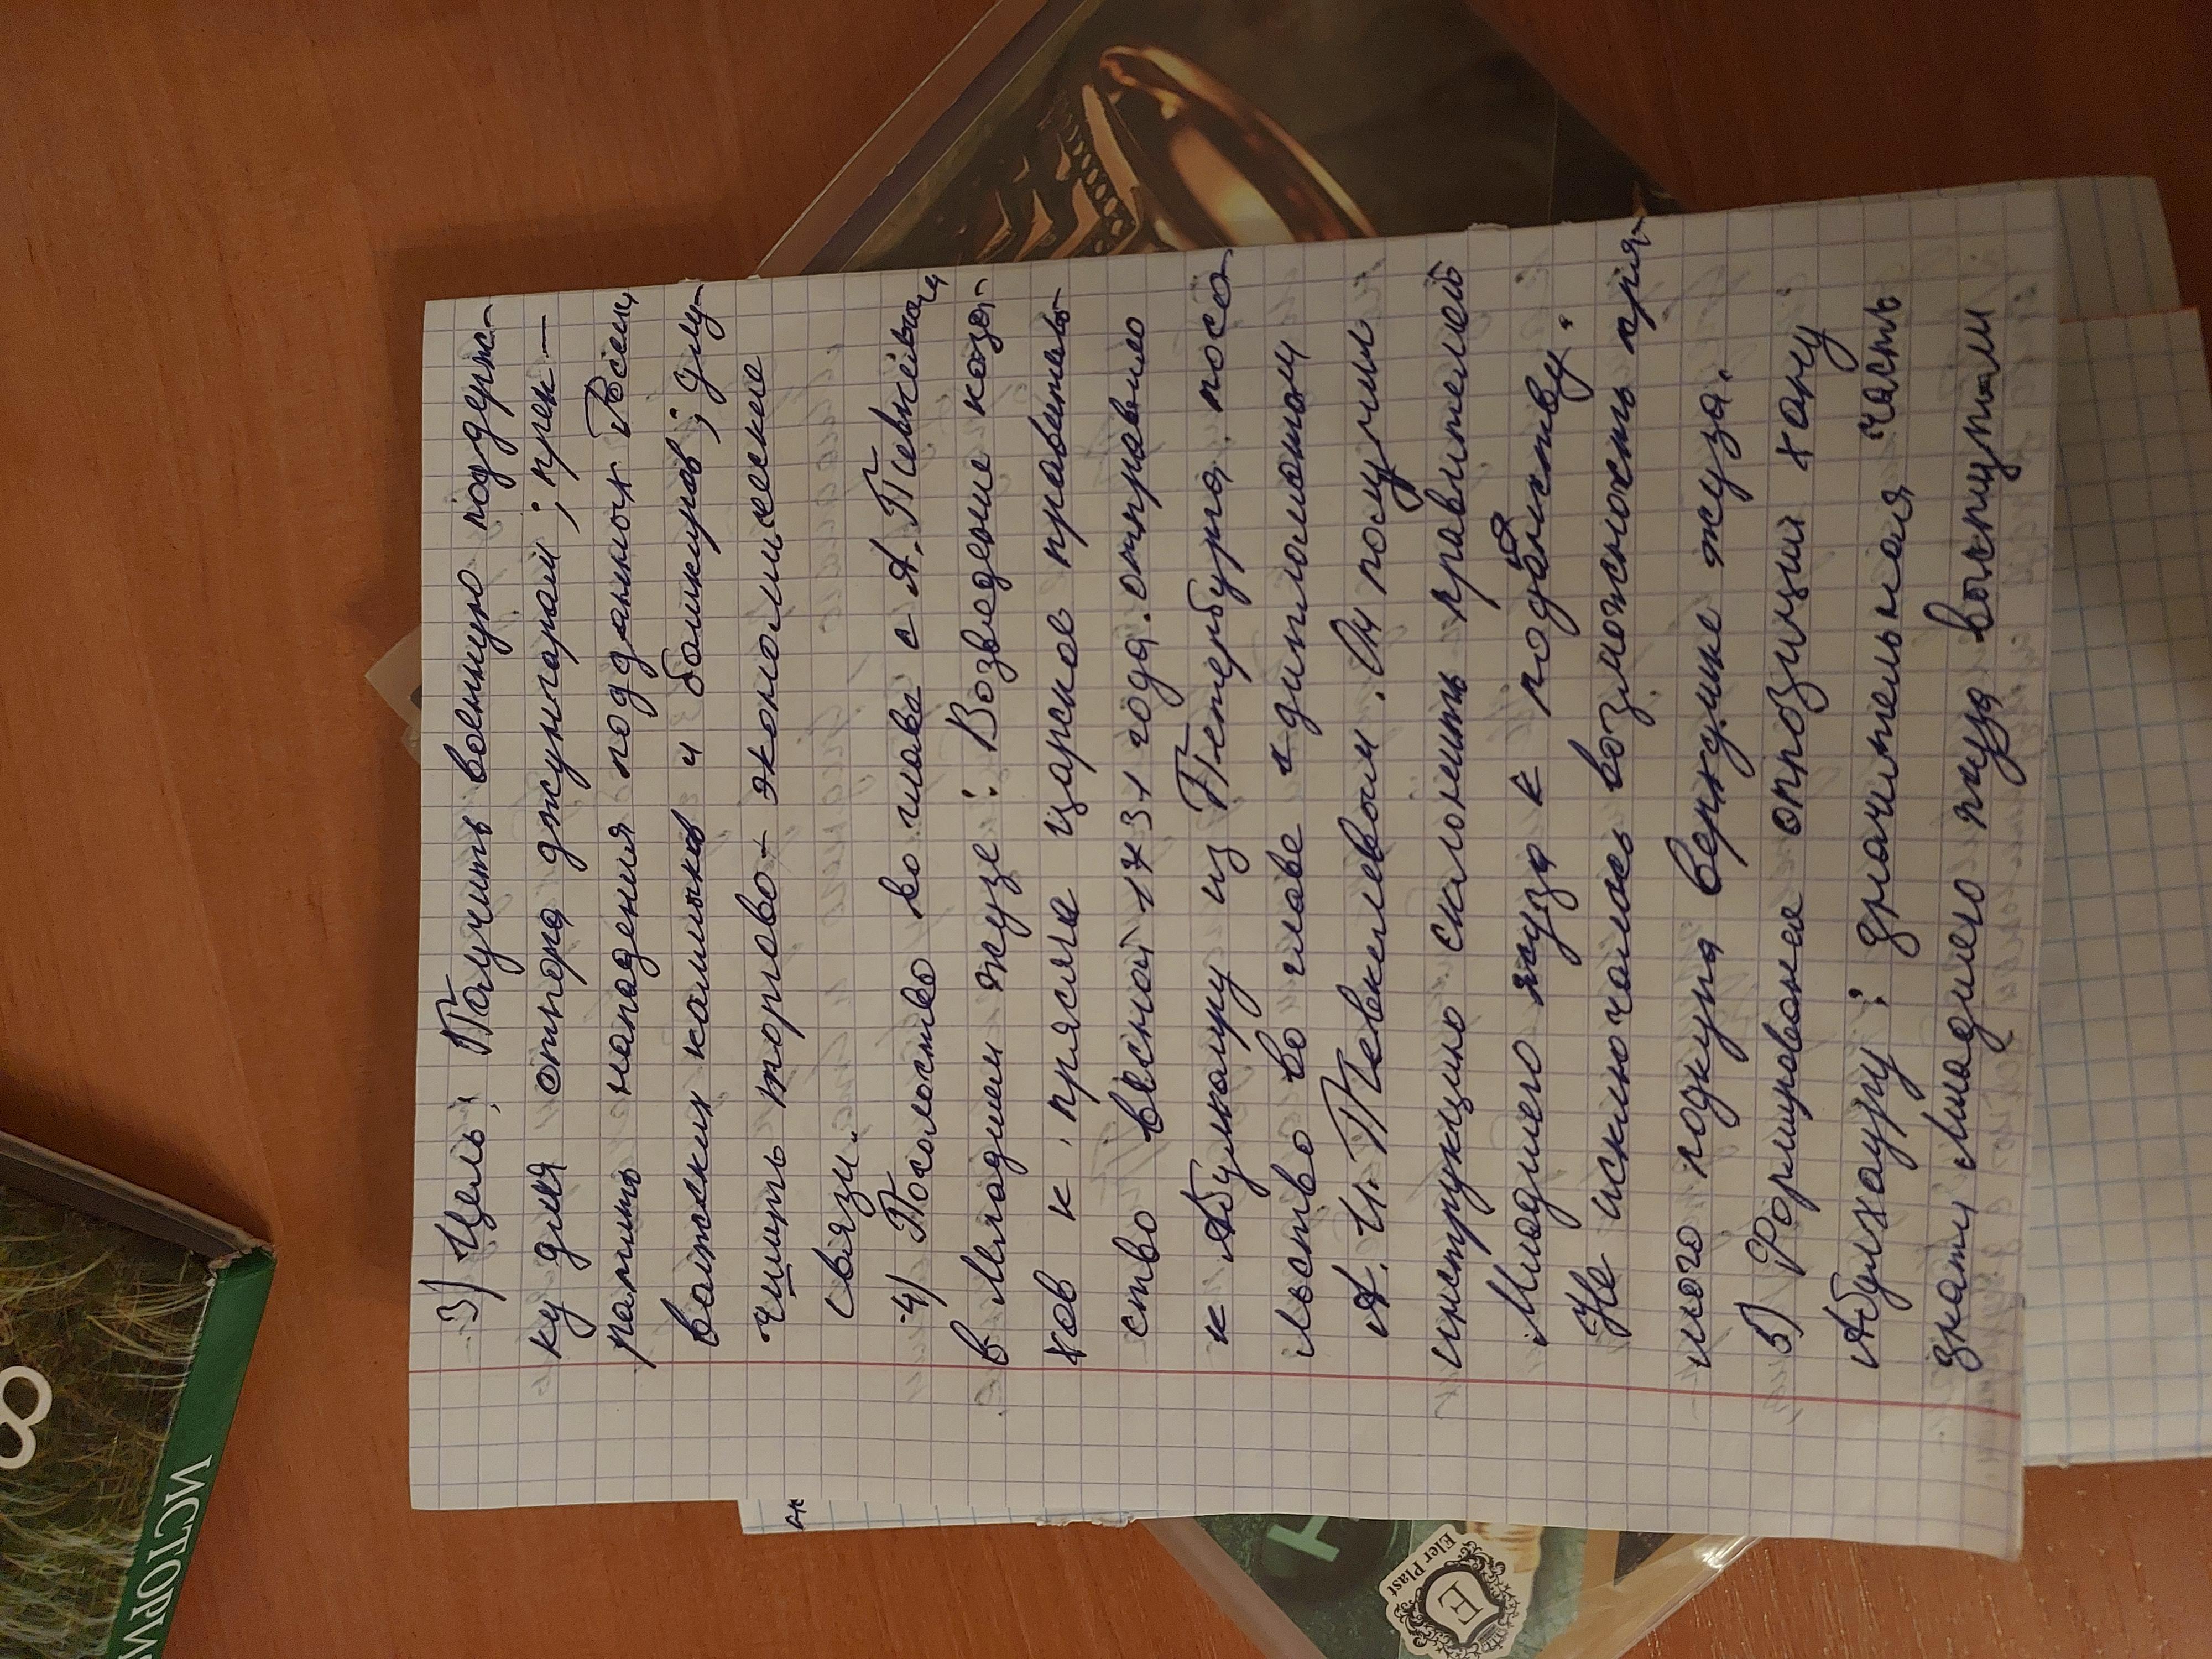 3) Цель: Получить военную поддерж-
ку для отпора джунгарам; прек-
ратить нападения подданных России
волжских калмыков и башкиров; улу-
чшить торгово-экономические
связи.
4) Посольство во главе с А. Тевкелевым
в Младшем жузе: Возведение каза-
хов к присяге царское правитель-
ство весной 1731 год. отправило
к Абулхаиру из Петербурга посо
льство во главе с дипломатом
А. И. Тевкелевым. Он получил
инструкцию склонить правителей
Младшего жуза к подданству.
Не исключалась возможность пря-
мого подкупа верхушке жуза.
5) Формирование оппозиции хану
Абулхаиру: значительная часть
знати Младшего жуза выступали
ИСТОРИ
8
Eler Plast
E